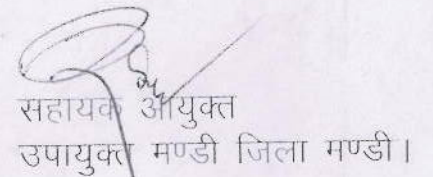 सहायक आयुक्त
उपायुक्त मण्डी जिला मण्डी।